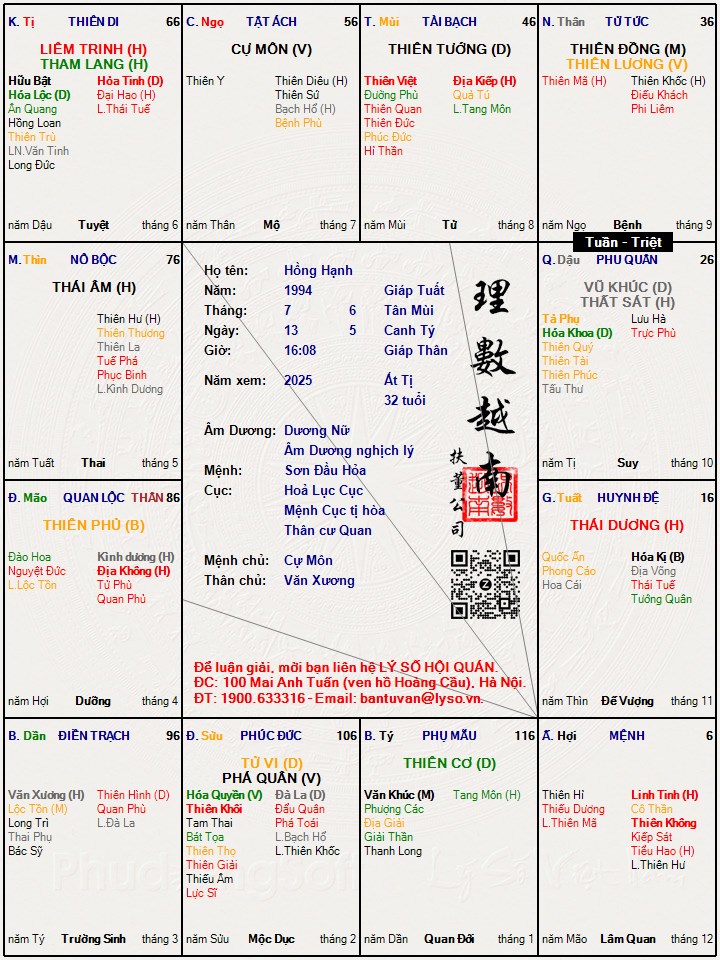 K. Tị THIÊN DI 66
LIÊM TRINH (H)
THAM LANG (H)
Hữu Bật Hỏa Tinh (D)
Hóa Lộc (D) Đại Hao (H)
Ân Quang L.Thái Tuế
Hồng Loan
Thiên Trù
LN.Văn Tinh
Long Đức
năm Dậu Tuyệt tháng 6
C. Ngọ TẬT ÁCH 56
CỰ MÔN (V)
Thiên Y Thiên Diêu (H)
Thiên Sứ
Bạch Hổ (H)
Bệnh Phù
năm Thân Mộ tháng 7
T. Mùi TÀI BẠCH 46
THIÊN TƯỚNG (D)
Thiên Việt Địa Kiếp (H)
Đường Phù Quả Tú
Thiên Quan L.Tang Môn
Thiên Đức
Phúc Đức
Hỉ Thần
năm Mùi Tử tháng 8
N. Thân TỬ TỨC 36
THIÊN ĐỒNG (M)
THIÊN LƯƠNG (V)
Thiên Mã (H) Thiên Khốc (H)
Điếu Khách
Phi Liêm
năm Ngọ Bệnh tháng 9
Tuần - Triệt
M. Thìn NÔ BỘC 76
THÁI ÂM (H)
Thiên Hư (H)
Thiên Thương
Thiên La
Tuế Phá
Phục Binh
L.Kình Dương
năm Tuất Thai tháng 5
Họ tên: Hồng Hạnh
Năm: 1994 Giáp Tuất
Tháng: 7 6 Tân Mùi
Ngày: 13 5 Canh Tý
Giờ: 16:08 Giáp Thân
Năm xem: 2025 Ất Tị
32 tuổi
Âm Dương: Dương Nữ
Âm Dương nghịch lý
Mệnh: Sơn Đầu Hỏa
Cục: Hoả Lục Cục
Mệnh Cục tị hòa
Thân cư Quan
Mệnh chủ: Cự Môn
Thân chủ: Văn Xương
理數越南
扶董公司
Để luận giải, mời bạn liên hệ LÝ SỐ HỘI QUÁN.
ĐC: 100 Mai Anh Tuấn (ven hồ Hoàng Cầu), Hà Nội.
ĐT: 1900.633316 - Email: bantuvan@lyso.vn.
Q. Dậu PHU QUÂN 26
VŨ KHÚC (D)
THẤT SÁT (H)
Tả Phụ Lưu Hà
Hóa Khoa (D) Trực Phù
Thiên Quý
Thiên Tài
Thiên Phúc
Tấu Thư
năm Tị Suy tháng 10
Đ. Mão QUAN LỘC THÂN 86
THIÊN PHỦ (B)
Đào Hoa Kình dương (H)
Nguyệt Đức Địa Không (H)
L.Lộc Tồn Tử Phù
Quan Phủ
năm Hợi Dưỡng tháng 4
G. Tuất HUYNH ĐỆ 16
THÁI DƯƠNG (H)
Quốc Ấn Hóa Kị (B)
Phong Cáo Địa Võng
Hoa Cái Thái Tuế
Tướng Quân
năm Thìn Đế Vượng tháng 11
B. Dần ĐIỀN TRẠCH 96
Văn Xương (H) Thiên Hình (D)
Lộc Tồn (M) Quan Phù
Long Trì L.Đà La
Thai Phụ
Bác Sỹ
năm Tý Trường Sinh tháng 3
Đ. Sửu PHÚC ĐỨC 106
TỬ VI (D)
PHÁ QUÂN (V)
Hóa Quyền (V) Đà La (D)
Thiên Khôi Đẩu Quân
Tam Thai Phá Toái
Bát Tọa L.Bạch Hổ
Thiên Thọ L.Thiên Khốc
Thiên Giải
Thiếu Âm
Lực Sĩ
năm Sửu Mộc Dục tháng 2
B. Tý PHỤ MẪU 116
THIÊN CƠ (D)
Văn Khúc (M) Tang Môn (H)
Phượng Các
Địa Giải
Giải Thần
Thanh Long
năm Dần Quan Đới tháng 1
Ấ. Hợi MỆNH 6
Thiên Hỉ Linh Tinh (H)
Thiếu Dương Cô Thần
L.Thiên Mã Thiên Không
Kiếp Sát
Tiểu Hao (H)
L.Thiên Hư
năm Mão Lâm Quan tháng 12